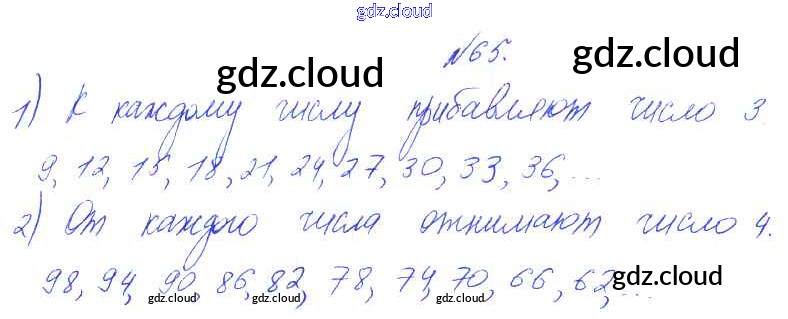 gdz.cloud
№65.
gdz.cloud gdz.cloud
1) К каждому числу прибавляют число 3.
9, 12, 15, 18, 21, 24, 27, 30, 33, 36, ...
2) От каждого числа отнимают число 4.
98, 94, 90, 86, 82, 78, 74, 70, 66, 62, ...
gdz.cloud gdz.cloud gdz.cloud gdz.cloud